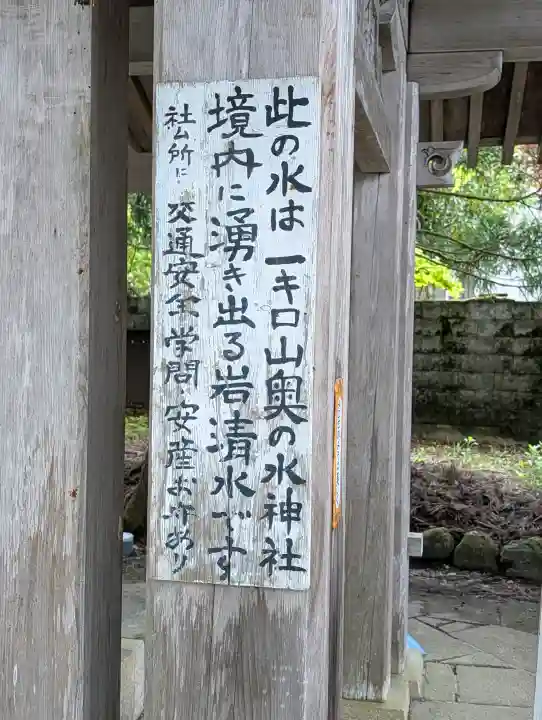 此の水は一キロ山奥の水神社
境内に湧き出る岩清水です
社ム所に交通安全学問安産お守あり